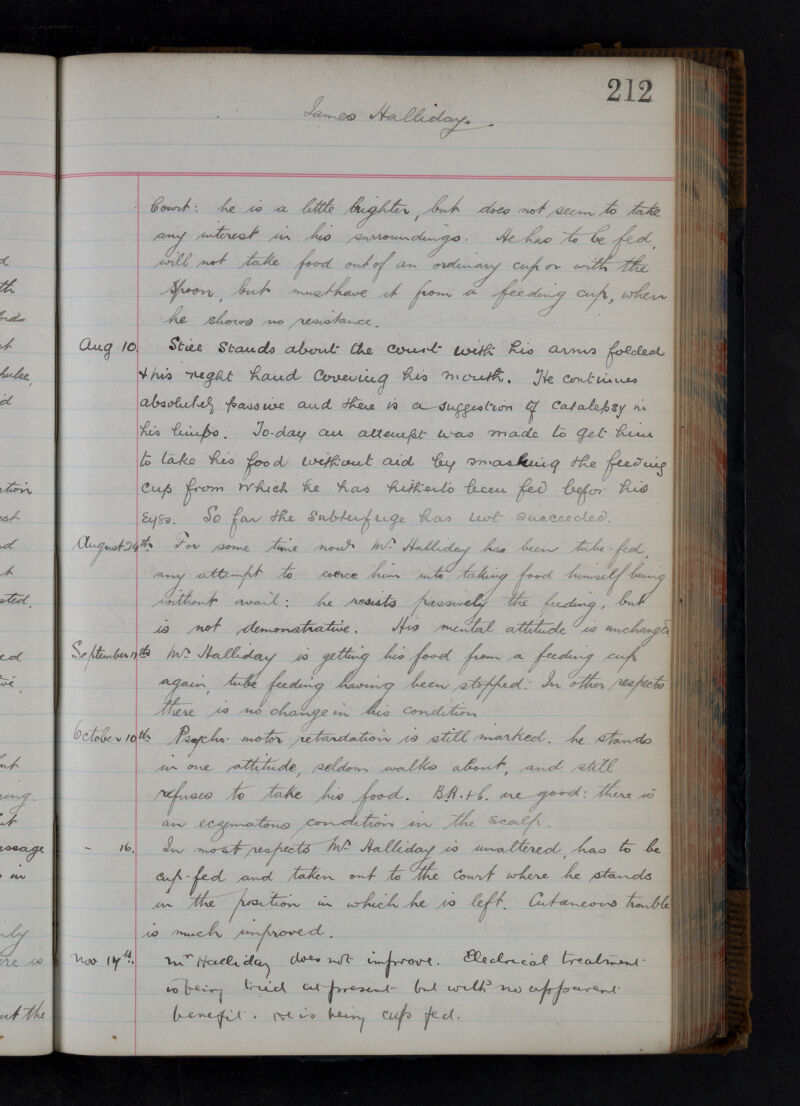 212
James Halliday.
Court: he is a little brighter, but does not seem to take
any interest in his surroundings. He has to be fed,
will not take food out of an ordinary cup or with the
spoon, but must have it from a feeding cup, when
he shows no resistance.
Aug 10. Still stands about the court with his arms folded
& his right hand covering his mouth. He continues
absolutely passive and there is a suggestion of catalepsy in
his limbs. To-day an attempt was made to get him
to take his food without aid by smashing the feeding
cup from which he has hitherto been fed before his
eyes. So far the subterfuge has not succeeded.
August 24th For some time now Mr Halliday has been tube-fed,
any attempt to coerce him into taking food himself being
without avail: he resists passively the feeding, but
is not demonstrative. His mental attitude is unchanged
September 11th Mr Halliday is getting his food from a feeding cup
again, tube feeding having been stopped. In other respects
there is no change in his condition
October 10th Psycho-motor retardation is still marked. he stands
in one attitude, seldom walks about, and still
refuses to take his food. B.H.&C. are good: there is
an eczematous condition in the scalp.
- 16. In most respects Mr Halliday is unaltered, has to be
cup-fed and taken out to the court where he stands
in the position in which he is left. Cutaneous trouble
is much improved.
Nov 14th. Mr Halliday does not improve. Electrical treatment
is being tried at present but with no apparent
benefit. He is being cup fed.